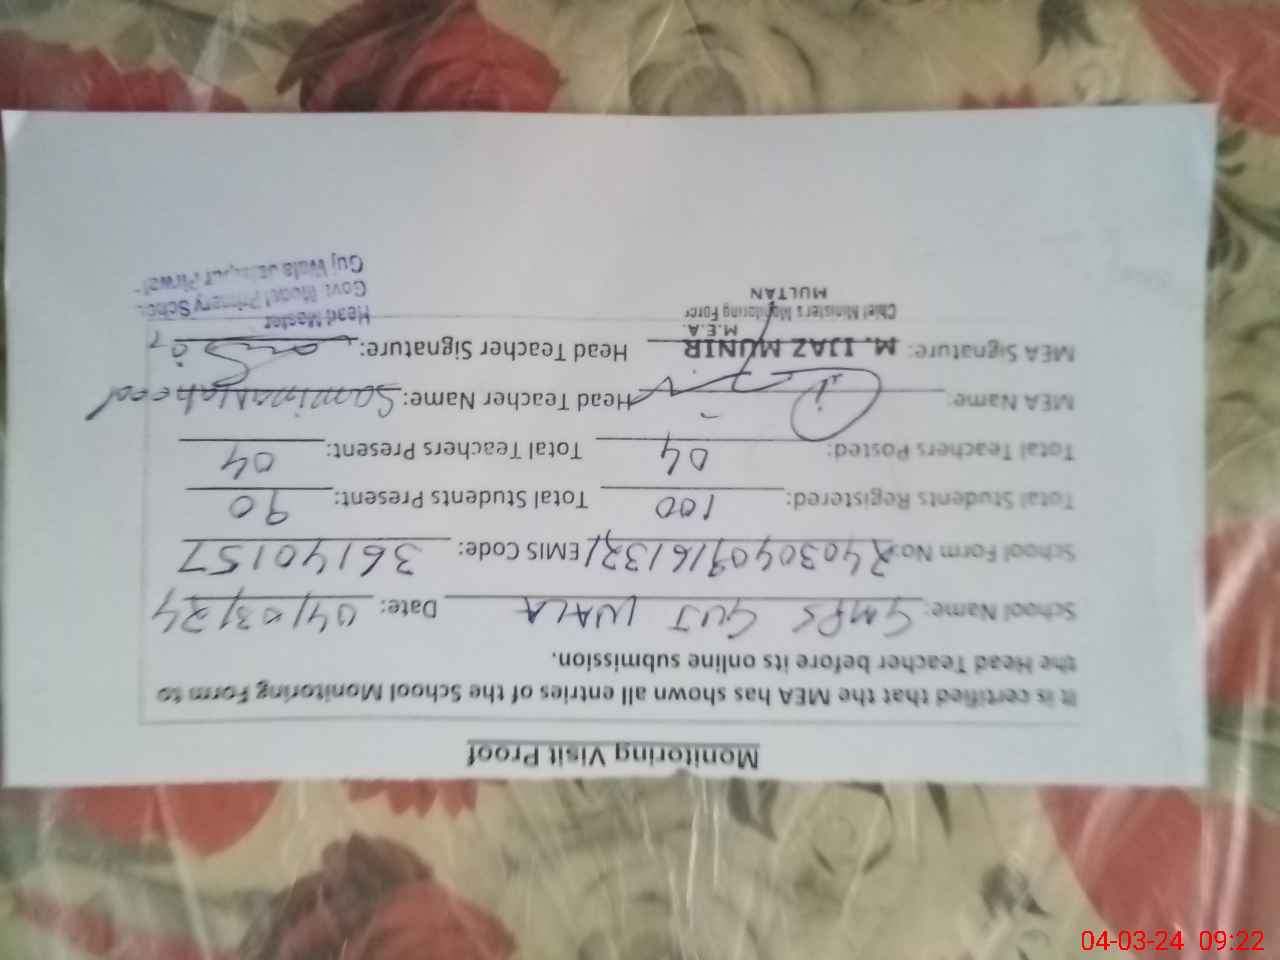 Monitoring Visit Proof
It is certified that the MEA has shown all entries of the School Monitoring Form to
the Head Teacher before its online submission.
School Name: GMPS GUJ WALA Date: 04/03/24
School Form No: EMIS Code: 36140157
Total Students Registered: 100 Total Students Present: 90
Total Teachers Posted: 04 Total Teachers Present: 04
MEA Name: Head Teacher Name:
MEA Signature: M. IJAZ MUNIR Head Teacher Signature:
M.E.A.
Chief Minister's Monitoring Force
MULTAN
Head Master
Govt. Model Primary School
Guj Wala
04-03-24 09:22